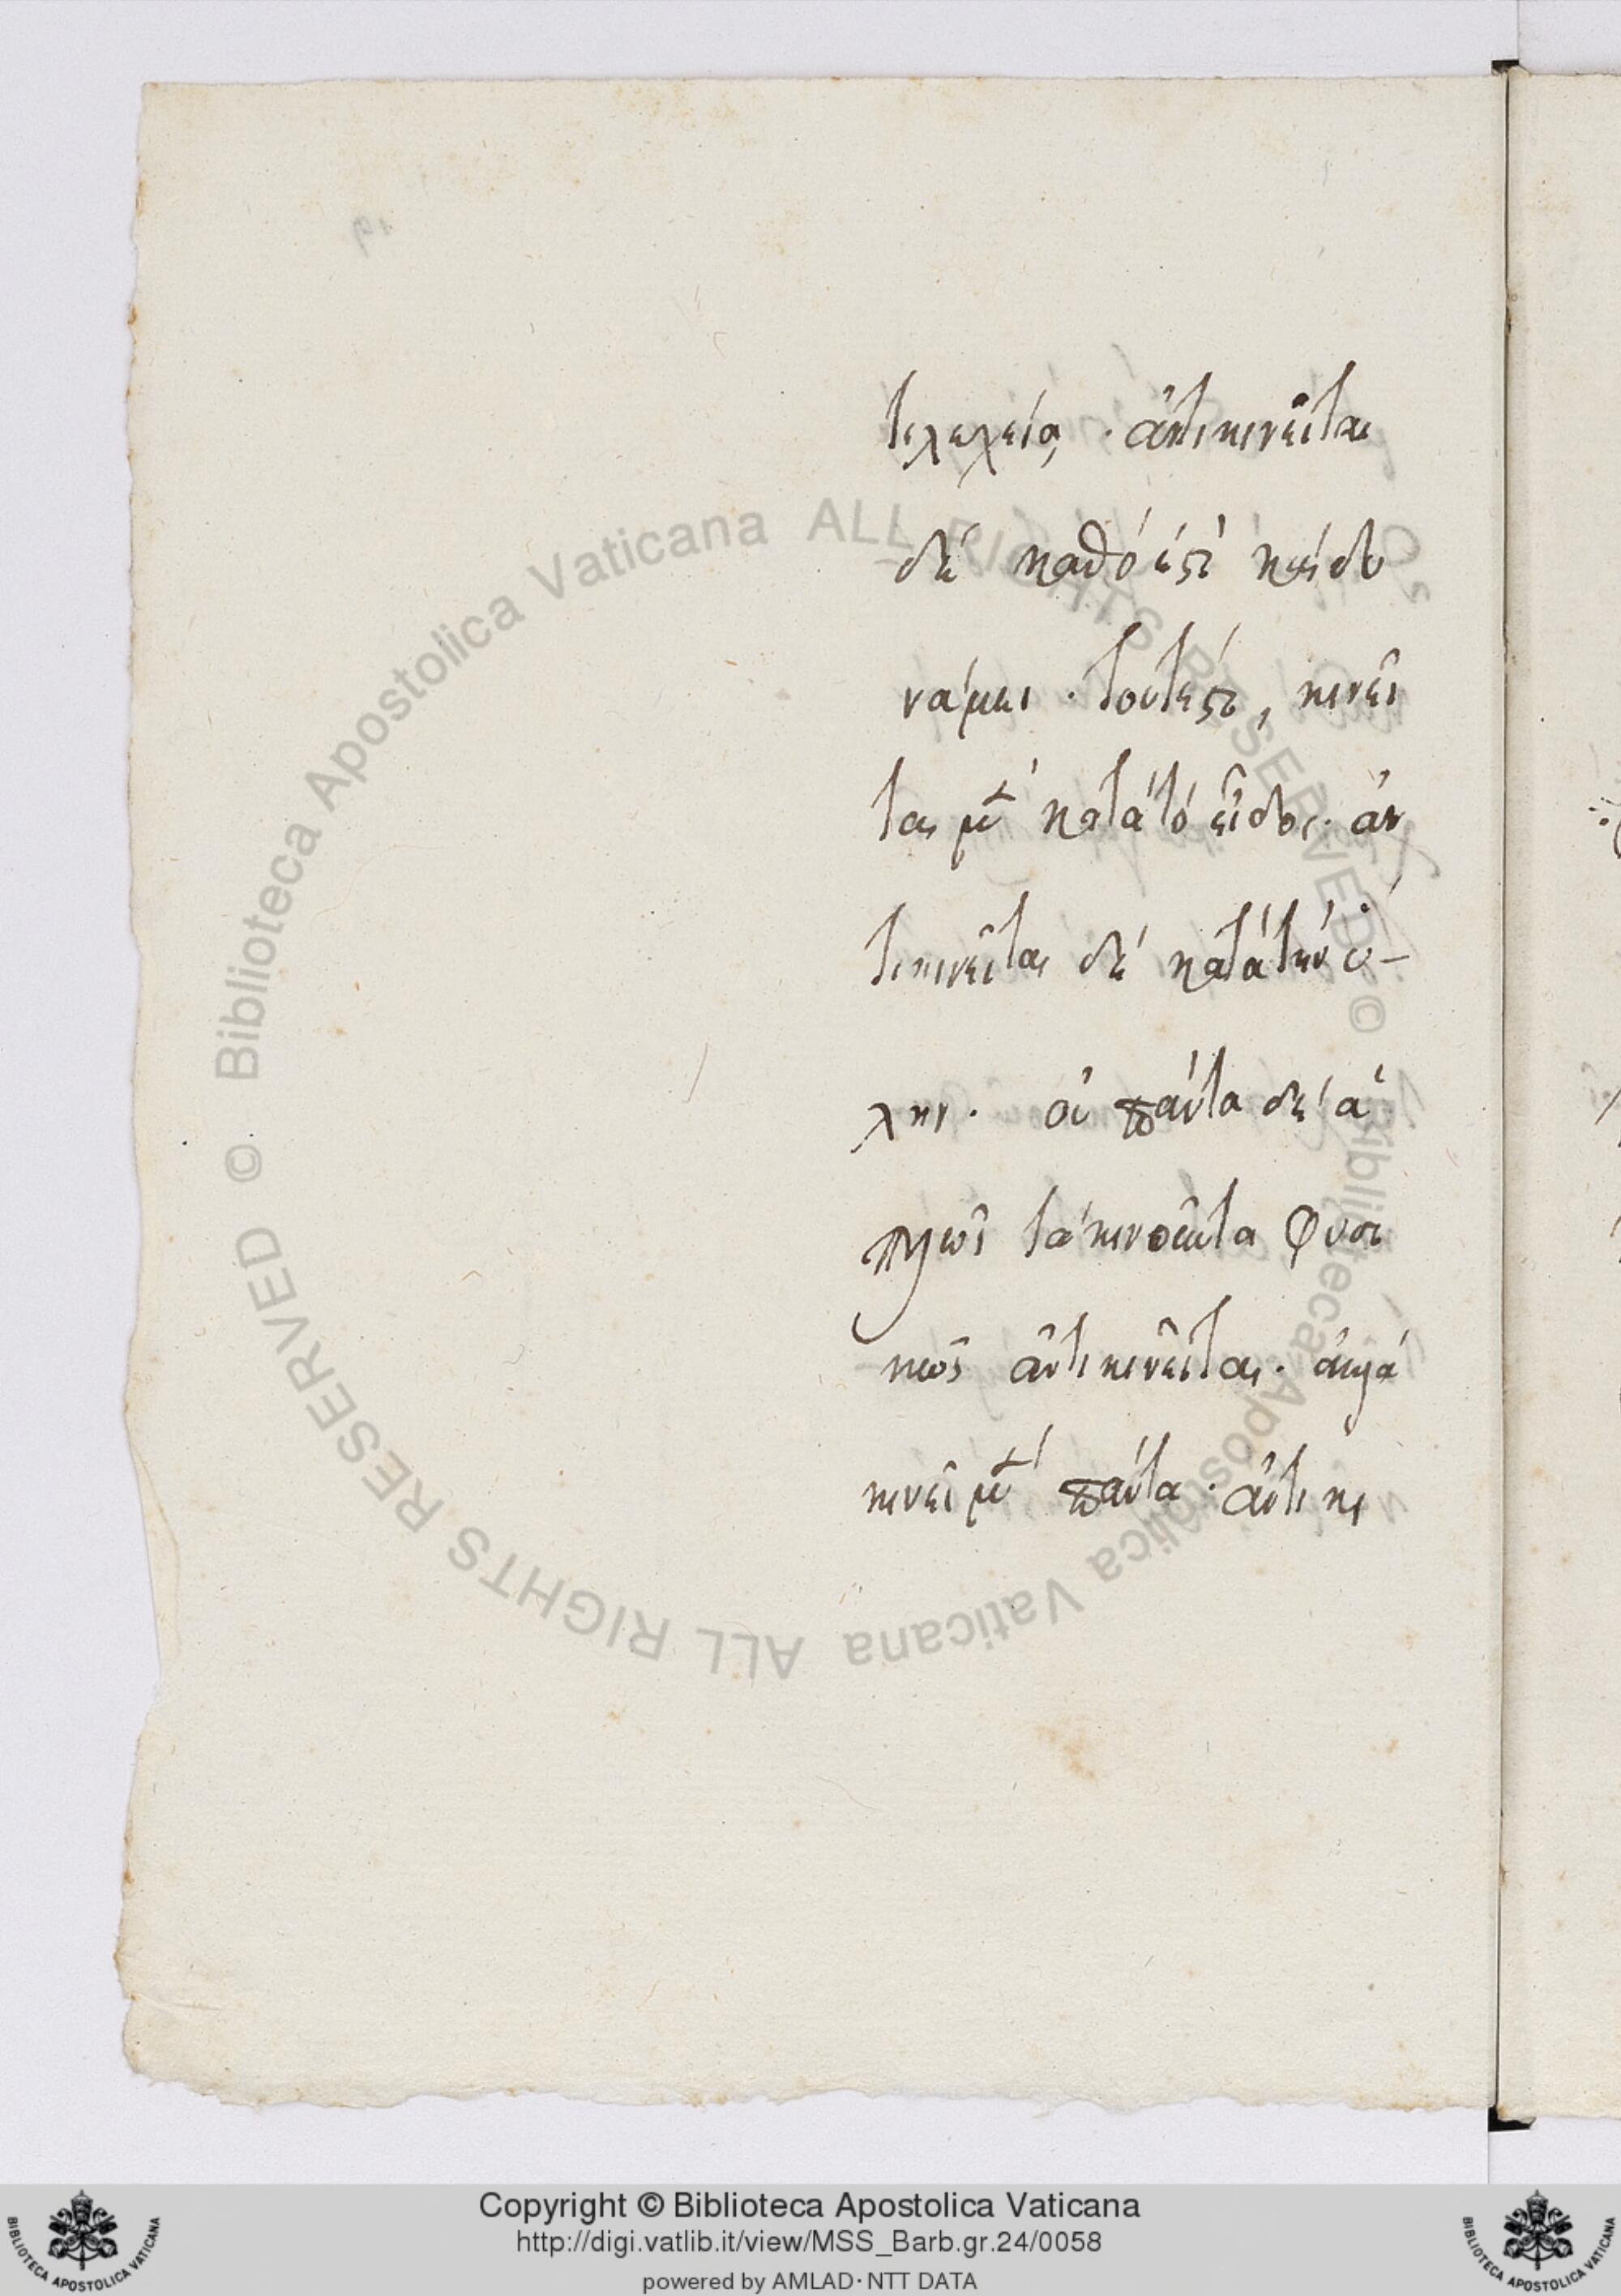 τελεχείᾳ · ἀντικινεῖται
δὲ καθό ἐστι καὶ δυ
νάμει · τουτέστι, κινεῖ
ται μὲν κατὰ τὸ εἶδος · ἀν
τικινεῖται δὲ κατὰ τὴν ὕ-
λην · οὐ πάντα δὲ ἁ
πλῶς τὰ κινοῦντα φυσι
κῶς ἀντικινεῖται · ἀλλὰ
κινεῖ μὲν πάντα · ἀντικι
© Biblioteca Apostolica Vaticana ALL RIGHTS RESERVED © Biblioteca Apostolica Vaticana ALL RIGHTS RESERVED
Copyright © Biblioteca Apostolica Vaticana
http://digi.vatlib.it/view/MSS_Barb.gr.24/0058
powered by AMLAD·NTT DATA
BIBLIOTECA APOSTOLICA VATICANA
BIBLIOTECA APOSTOLICA VATICANA